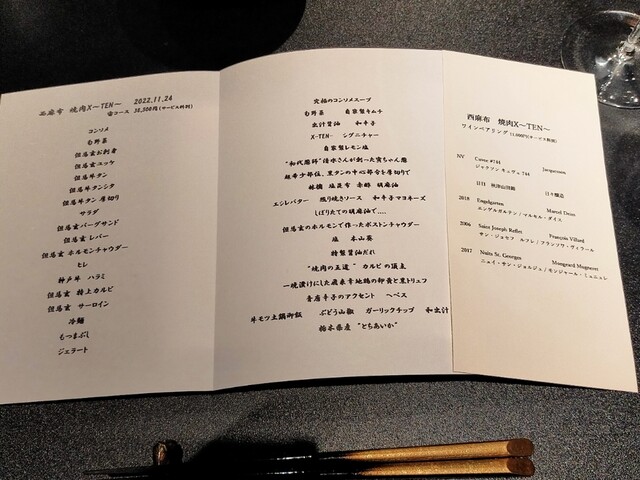 西麻布 焼肉X~TEN~ 2022.11.24
コース 38,500円(サービス料別)
コンソメ
旬野菜
但馬玄お刺身
但馬玄ユッケ
但馬牛タン
但馬牛タンシタ
但馬牛タン 厚切り
サラダ
但馬玄バーグサンド
但馬玄 レバー
但馬玄 ホルモンチャウダー
ヒレ
神戸牛 ハラミ
但馬玄 特上カルビ
但馬玄 サーロイン
冷麺
もつまぶし
ジェラート
究極のコンソメスープ
旬野菜 自家製キムチ
出汁醤油 和辛子
X-TEN- シグニチャー
自家製レモン塩
"和代彫師"清水さんが創った寅ちゃん盛
超希少部位、黒タンの中心部分を厚切りで
林檎 塩昆布 赤酢 胡麻油
エシレバター 照り焼きソース 和辛子マヨネーズ
しぼりたての胡麻油で....
但馬玄のホルモンで作ったボストンチャウダー
塩 本山葵
特製醤油だれ
"焼肉の王道" カルビの頂点
一晩漬けにした蔵来幸地鶏の卵黄と黒トリュフ
青唐辛子のアクセント ヘベス
牛モツ土鍋御飯 ぶどう山椒 ガーリックチップ 和出汁
栃木県産 "とちあいか"
西麻布 焼肉X~TEN~
ワインペアリング 11,000円(サービス料別)
NV Cuvee #744 Jacquesson
ジャクソン キュヴェ 744
日日 秋津山田錦 日々醸造
2018 Engelgarten Marcel Deiss
エンゲルガルテン / マルセル・ダイス
2006 Saint Joseph Reflet François Villard
サン・ジョセフ ルフレ / フランソワ・ヴィラール
2017 Nuits St. Georges Mongeard Mugneret
ニュイ・サン・ジョルジュ / モンジャール・ミュニュレ